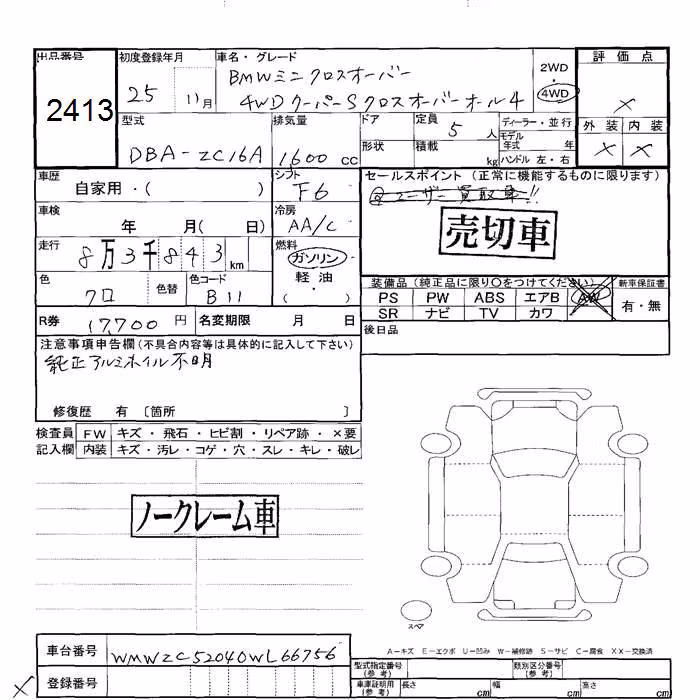 出品番号
2413
初度登録年月
25 11月
車名・グレード
BMWミニクロスオーバー
4WDクーパーSクロスオーバーオール4
2WD
・
4WD
評価点
×
外装 内装
× ×
型式
DBA-ZC16A
排気量
1600 cc
ドア
形状
定員 5 人
積載 kg
ディーラー・並行
モデル年式 年
ハンドル 左・右
車歴
自家用・( )
シフト
F6
車検
年 月( 日)
冷房
AA/C
走行
8万3千843 km
燃料
ガソリン
軽油
( ・ )
色
クロ
色替
色コード
B11
R券 17,700 円
名変期限 月 日
セールスポイント(正常に機能するものに限ります)
ユーザー買取車!!
売切車
装備品(純正品に限り○をつけてください)
新車保証書
PS PW ABS エアB AW
SR ナビ TV カワ
有・無
後日品
注意事項申告欄(不具合内容等は具体的に記入して下さい)
純正アルミホイル不明
修復歴 有 〔箇所 〕
検査員 FW キズ・飛石・ヒビ割・リペア跡・×要
記入欄 内装 キズ・汚レ・コゲ・穴・スレ・キレ・破レ
ノークレーム車
スペア
A－キズ E－エクボ U－凹み W－補修跡 S－サビ C－腐食 XX－交換済
車台番号 WMWZC52040WL66756
× 登録番号
型式指定番号(参考) 類別区分番号(参考)
車庫証明用(参考) 長さ cm 幅 cm 高さ cm